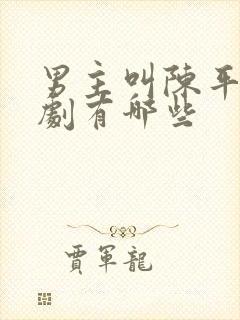 男主叫陳平
劇有哪些
賈軍龍